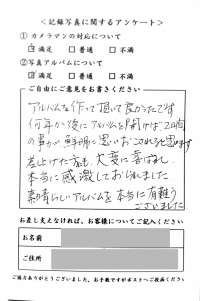 ＜記録写真に関するアンケート＞
① カメラマンの対応について
☑ 満足 □ 普通 □ 不満
② 写真アルバムについて
☑ 満足 □ 普通 □ 不満
ご自由にご意見をお書きください
アルバムを作って頂いて良かったです
何年か後にアルバムを開けば、この時
の事が鮮明に思いおこされると思います
差上げた方も、大変に喜ばれ
本当に感激しておられました
素晴らしいアルバムを本当に有難う
ございました
お差し支えなければ、お客様についてご記入ください
お名前
ご住所
ご協力ありがとうございました。お手数ですがポストへご投函ください